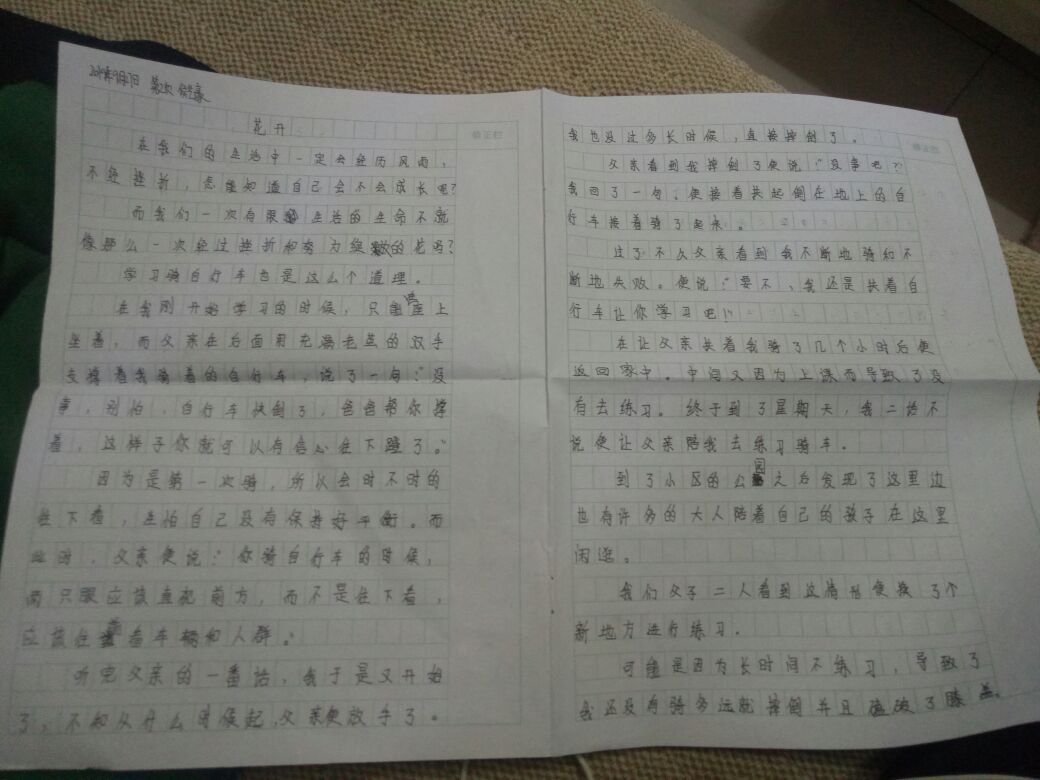 花开
在我们的生活中一定会经历风雨，
不经挫折，怎能知道自己会不会成长呢？
而我们一次有限 生活的生命不就
像那么一次经过挫折和努力 绽放的花吗？
学习骑自行车也是这么个道理。
在我刚开始学习的时候，只能 座上
坐着，而父亲在后面用充满老茧的双手
支撑着我骑着的自行车，说了一句：“没
事，别怕，自行车快倒了，爸爸帮你撑
着，这样子你就可以有信心往下 了。”
因为是第一次骑，所以会时不时的
往下看，生怕自己没有保持好平衡。而
此时，父亲便说：“你骑自行车的时候，
两只眼应该直视前方，而不是往下看，
应该往 看车辆和人群。”
听完父亲的一番话，我于是又开始
了，不知从什么时候起，父亲便放手了。
修正栏
我也没过多长时候，直接摔倒了。
父亲看到我摔倒了便说：“没事吧？”
我回了一句，便接着扶起倒在地上的自
行车接着骑了起来。
过了不久父亲看到我不断地骑和不
断地失败。便说：“要不，我还是扶着自
行车让你学习吧！”
在让父亲扶着我骑了几个小时后便
返回家中。中间又因为上课而导致了没
有去练习。终于到了星期天，我二话不
说便让父亲陪我去练习骑车。
到了小区的公园之后发现了这里边
也有许多的大人陪着自己的孩子在这里
闲逛。
我们父子二人看到这情形便换了个
新地方进行练习。
可能是因为长时间不练习，导致了
我还没有骑多远就摔倒并且磕破了膝盖。
修正栏